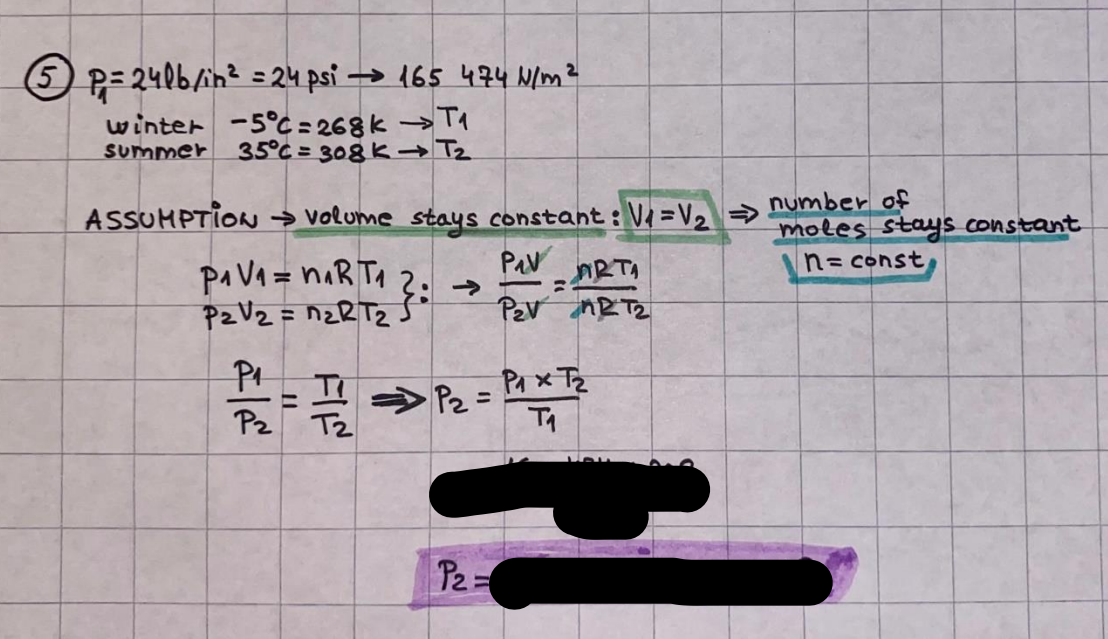 ⑤ P₁ = 24lb/in² = 24psi → 165 474 N/m²
winter -5°C = 268K → T₁
summer 35°C = 308K → T₂
ASSUMPTION → volume stays constant: V₁ = V₂ ⇒ number of
moles stays constant
n = const.
P₁V₁ = n₁RT₁ }: → P₁V / P₂V = nRT₁ / nRT₂
P₂V₂ = n₂RT₂
P₁ / P₂ = T₁ / T₂ ⇒ P₂ = P₁ × T₂ / T₁
P₂ =